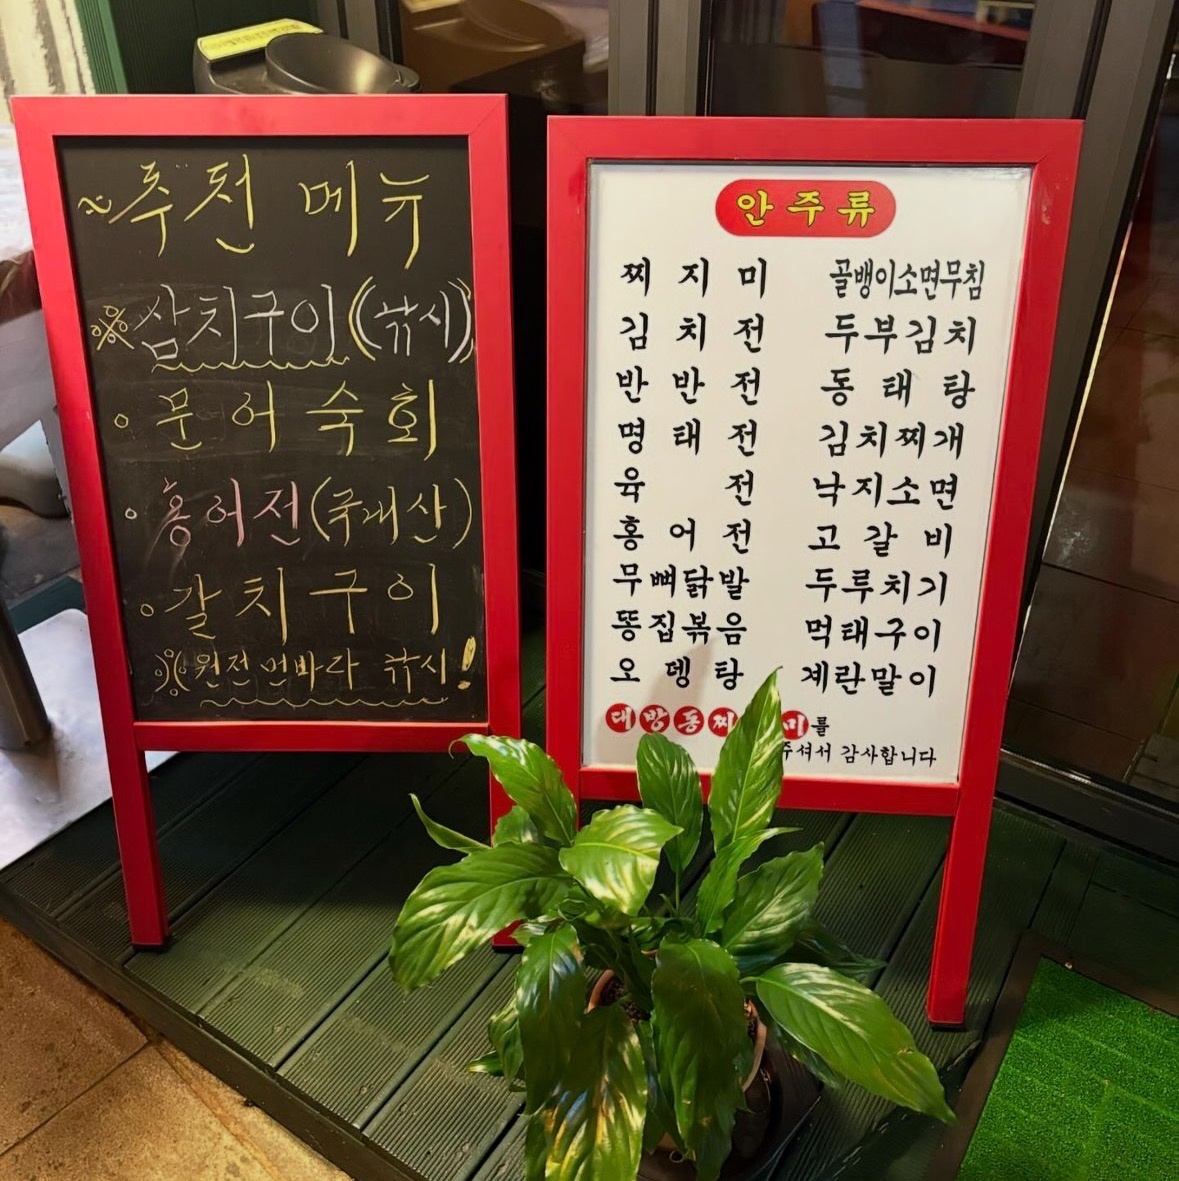 ~추천 메뉴
※삼치구이(낚시)
○ 문어숙회
○ 홍어전(국내산)
○ 갈치구이
※원전 먼바다 낚시!
안주류
찌지미 골뱅이소면무침
김치전 두부김치
반반전 동태탕
명태전 김치찌개
육전 낙지소면
홍어전 고갈비
무뼈닭발 두루치기
똥집볶음 먹태구이
오뎅탕 계란말이
대방동찌 미를
주셔서 감사합니다